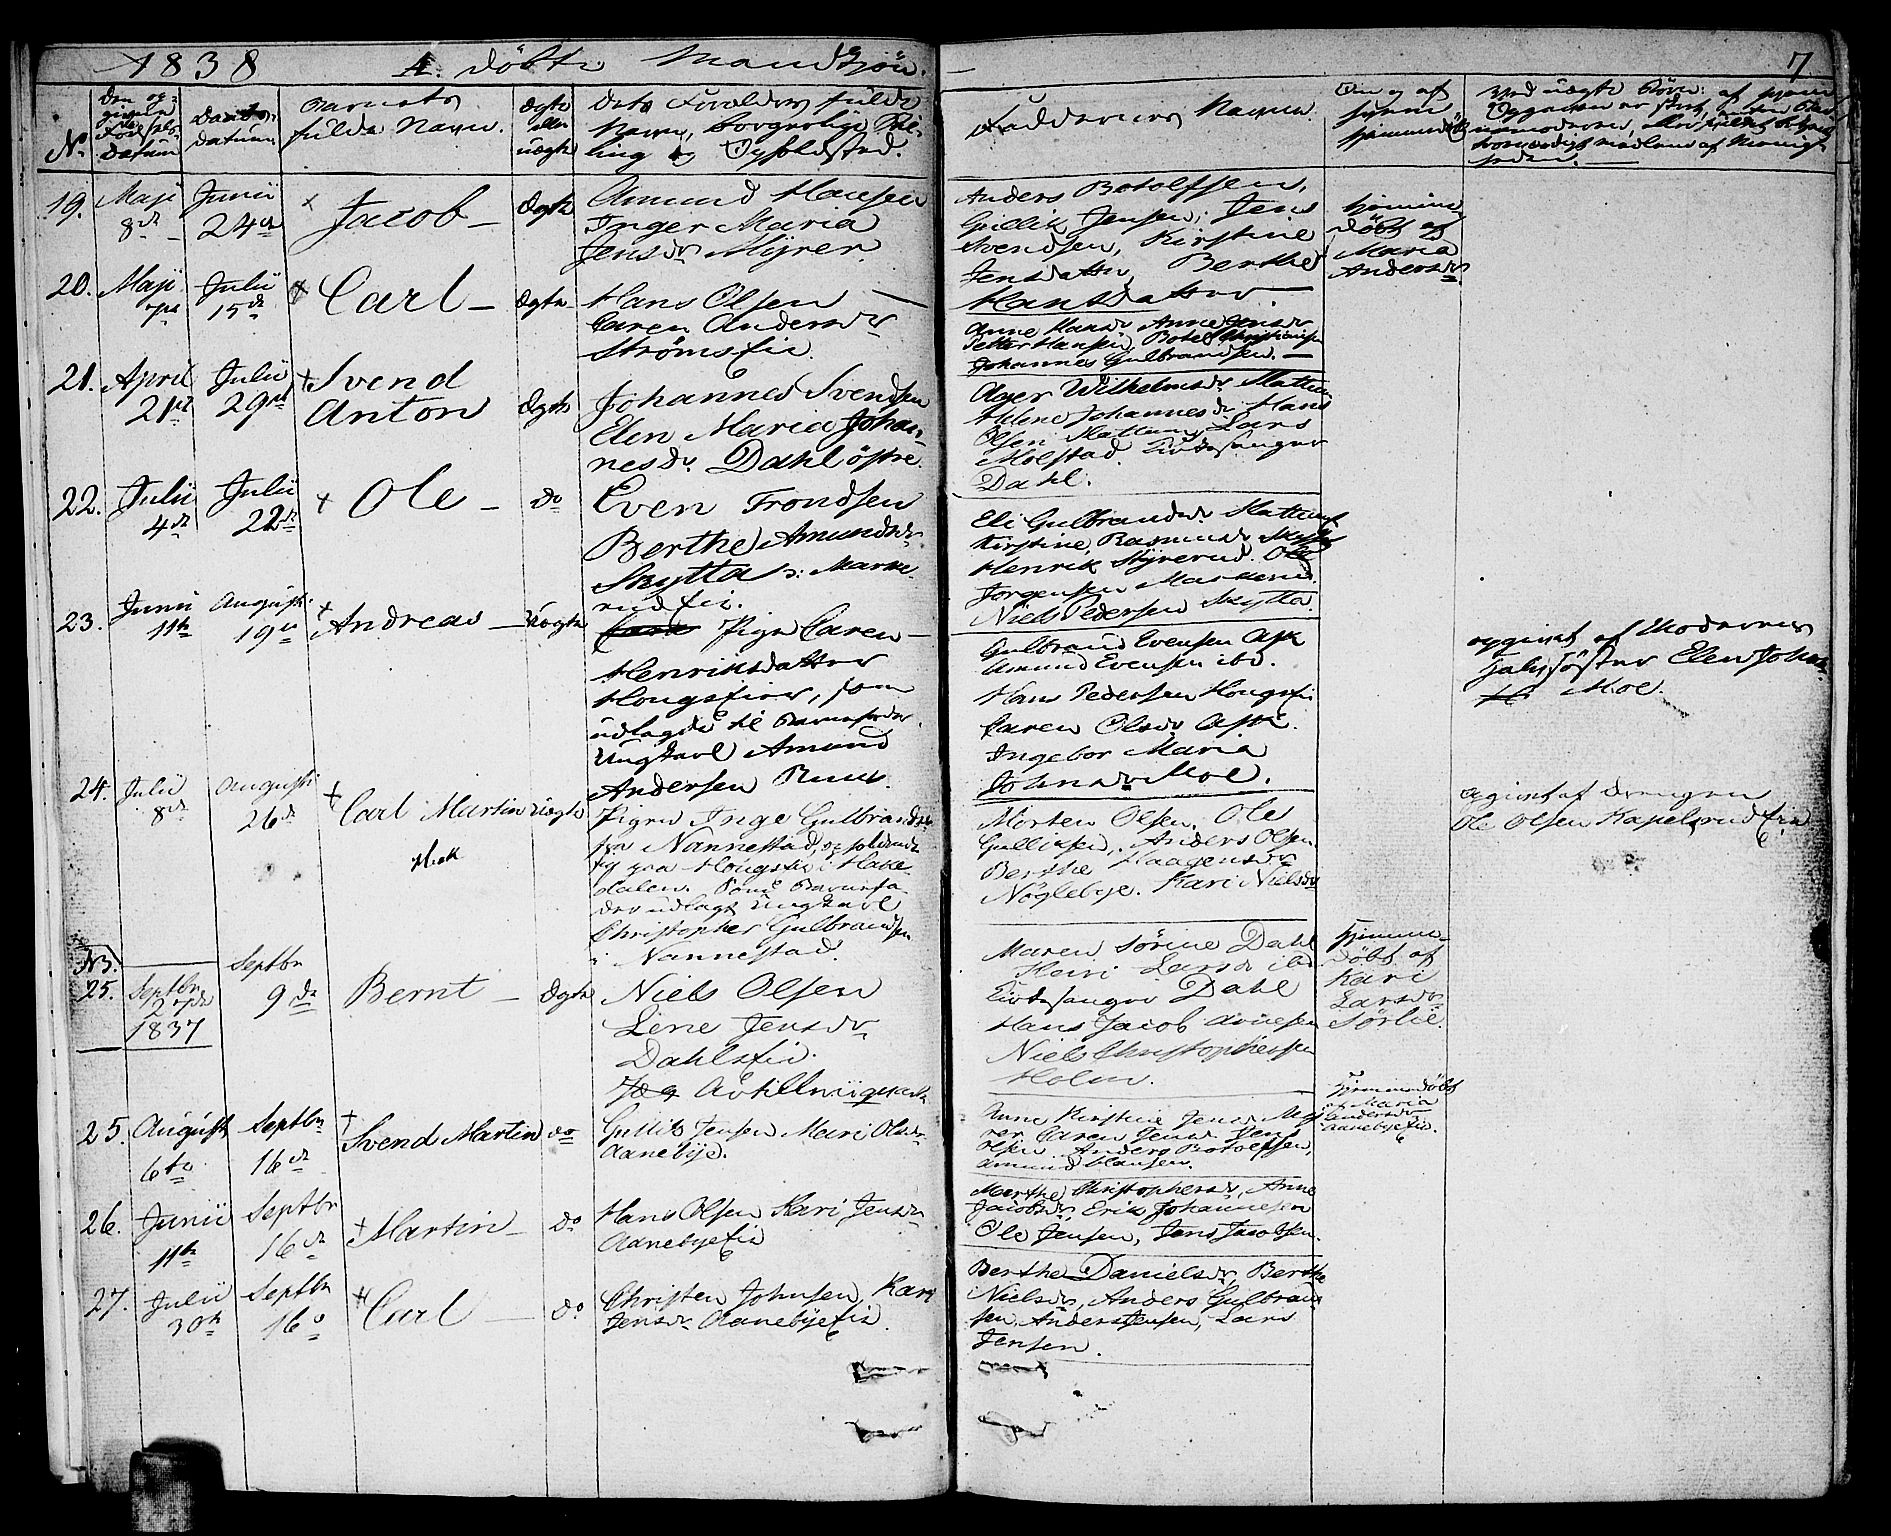 1838 A. Döbte Mandkjön. 7
No
Den op-
givne
Fødsels-
datum
Daabs-
datum.
Barnets
fulde Navn.
Ægte
eller
uægte
dets Forældres fulde
Navn, borgerlige Stil-
ling og Opholdssted.
Faddernes Navn.
19. Maji
8de
Junii
24de
Jacob
Ægte
Amund Hansen
Inger Maria
Jensdr Myrer
Anders Botolfsen,
Gullik Jensen, Jens
Svendsen, Kirstine
Jensdatter, Berthe
Hansdatter.
hjemme
döbt af
Maria
Andersdr
20. Maji
Julii
15de
Carl
Ægte
Hans Olsen
Caren Andersdr
Strömseie
Anne Hansdr Anne Jensdr
Petter Hansen, Botel Christiansen
Johannes Gulbrandsen.
21. April
21de
Julii
29de
Svend
Anton
Ægte
Johannes Svendsen
Elen Maria Johan-
nesdr Dahl östre.
Ager Wilhelmsdr Slattum
Helene Johannesdr Hans
Olsen Slattum, Lars
Molstad. Kirkesanger
Dahl.
22. Julii
4de
Julii
22de
Ole
do
Even Trondsen
Berthe Amundsdr
Skytta s: Marke-
rudeie.
Eli Gulbrandsdr Slattum
Kirstine Rasmusdr Skytta
Henrik Styrerud. Ole
Jorgensen Markerud
Niels Pedersen Skytta.
23. Junii
11te
Augusti
19de
Andreas
Uægte
Pige Caren
Henriksdatter
Hougseier, som
udlagde til Barnefader
Ungkarl Amund
Andersen Ruus.
Gulbrand Evensen Ask
Amund Evensen ibd.
Hans Pedersen Hougsei
Caren Olsdr Ask.
Ingebor Maria
Johnsdr Moe.
opgivet af Moderens
halvsöster Elen Johns
Moe.
24. Julii
8de
Augusti
26de
Carl Martin
Hak
Uægte
Pigen Inge Gulbrandsdr
fra Nannestad, og
Hougsei i Hake-
dalen. Som Barnefa-
der udlagt Ungkarl
Christopher Gulbrandsen
i Nannestad.
Morten Olsen, Ole
Gulliksen, Anders Olsen
Berthe Haagensdr
Nöglebye. Kari Nielsdr
opgivet af Drengen
Ole Olsen Kapelsrudeie
N3.
25. Septbr
1837
Septbr
9de
Bernt
Ægte
Niels Olsen
Lene Jensdr
Dahlseie.
Maren Sörine Dahl
Kari Larsdr ibd
Kirkesanger Dahl
Hans Jacob Arnesen
Niels Christophersen
Holm.
hjemme-
döbt af
Kari
Larsdr
Sörlie.
25. August
6te
Septbr
16de
Svend Martin
do
Gullik Jensen Mari Olsdr
Aanebye.
Anne Kirstine Jensdr My-
rer Caren Jensdr Jens
Olsen Anders Botolfsen,
Amund Hansen.
hjemmedöbt
af Maria
Andersdr
Aanebyeeie.
26. Junii
11te
Septbr
16de
Martin
do
Hans Olsen Kari Jensdr
Aanebyeeie
Marthe Christophersdr, Anne
Jacobsdr Erik Johannesen
Ole Jensen, Jens Jacobsen.
27. Julii
30te
Septbr
16de
Carl
do
Christen Johnsen, Kari
Jensdr Aanebyeeie.
Berthe Danielsdr, Berthe
Nielsdr, Anders Gulbrand-
sen, Anders Jensen, Lars
Jensen.